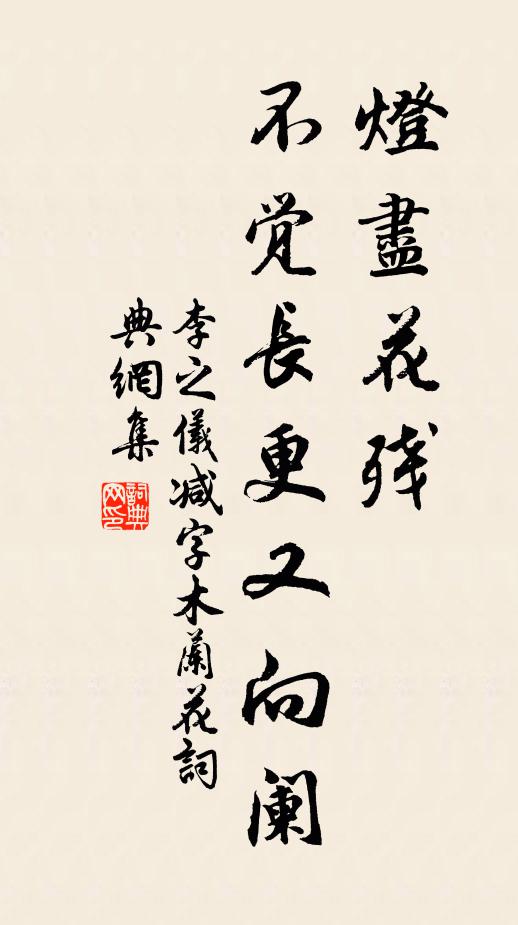 燈盡花残
不覺長更又向阑
李之儀减字木蘭花詞
典網集
詞典网印